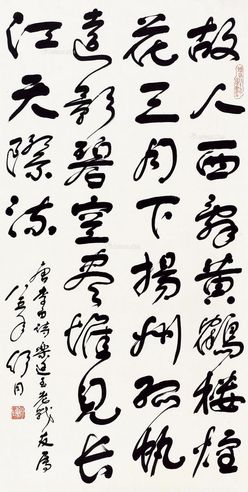 故人西辭黃鶴樓煙
花三月下揚州孤帆
遠影碧空盡惟見長
江天際流
唐李白詩 樂廷玉老戰友屬
八五年 舒同